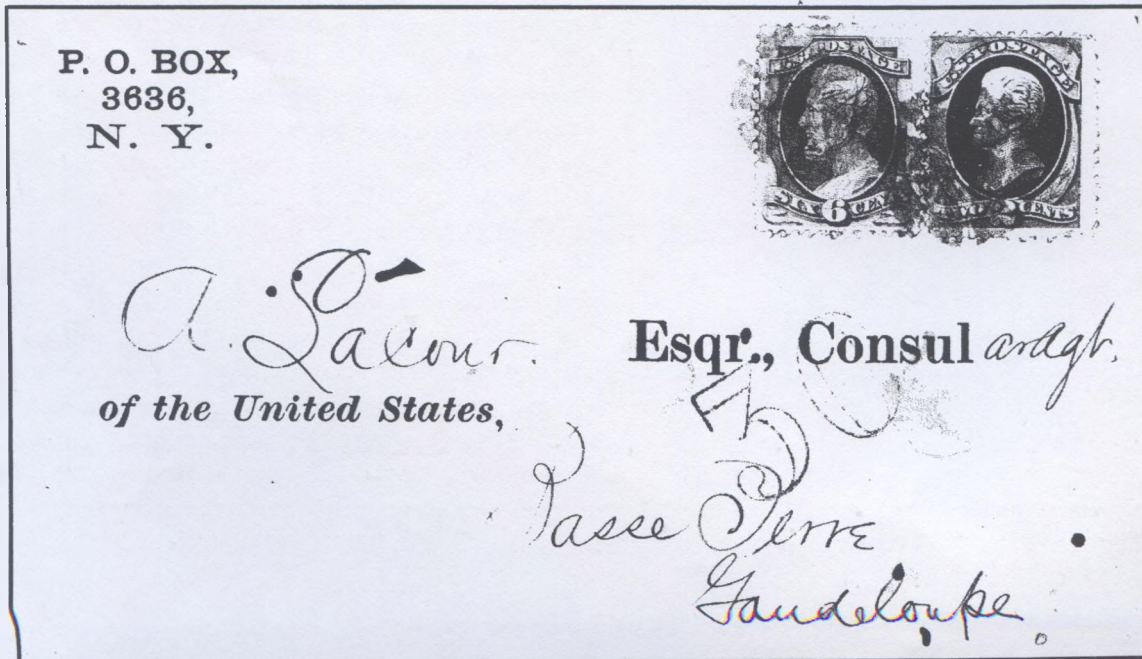 P. O. BOX,
3636,
N. Y.
U.S. POSTAGE
SIX 6 CENTS
U.S. POSTAGE
TWO 2 CENTS
A. Lacour.
Esqr., Consul
of the United States,
30
Basse Terre
Gaudeloupe.